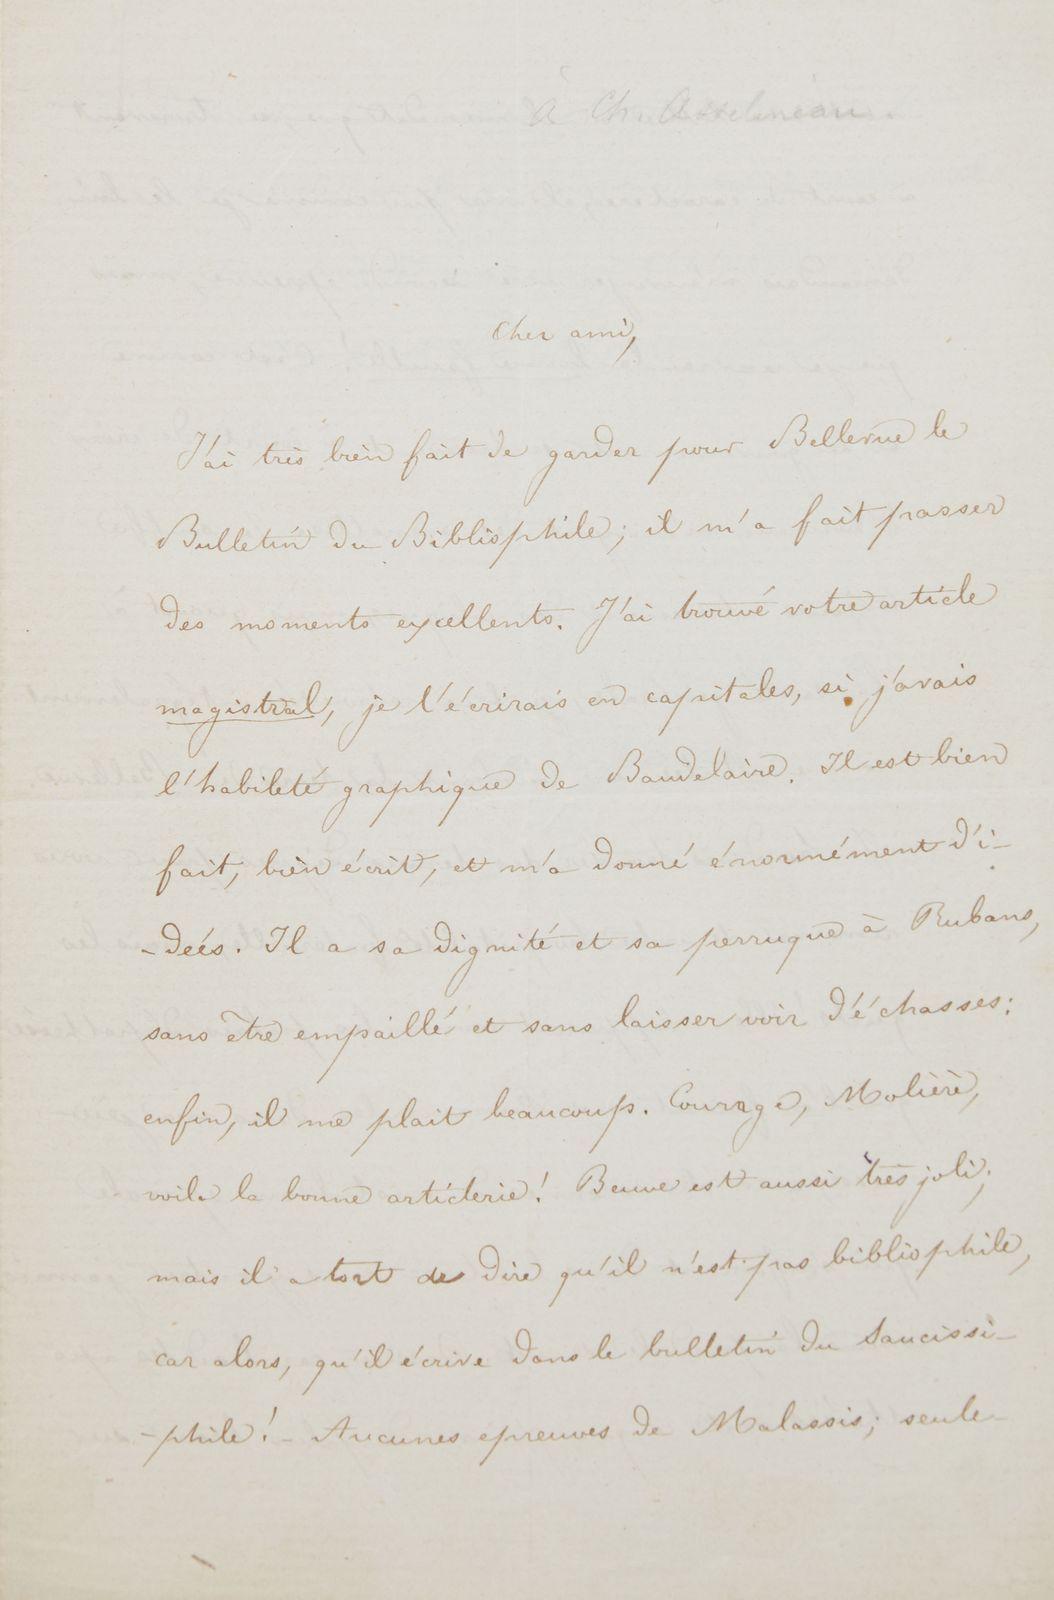 À Ch. Asselineau.
Cher ami,
J'ai très bien fait de garder pour Bellevue le
Bulletin du Bibliophile; il m'a fait passer
des moments excellents. J'ai trouvé votre article
magistral, je l'écrirais en capitales, si j'avais
l'habileté graphique de Baudelaire. Il est bien
fait, bien écrit, et m'a donné énormément d'i-
-deés. Il a sa dignité et sa perruque à Rubans,
sans être empaillé et sans laisser voir d'échasses;
enfin, il me plait beaucoup. Courage, Molière,
voila la bonne articlerie! Beuve est aussi très joli;
mais il a tort de dire qu'il n'est pas bibliophile,
car alors, qu'il écrive dans le bulletin du Saucissi-
-phile! - Aucunes epreuves de Malassis; seule-